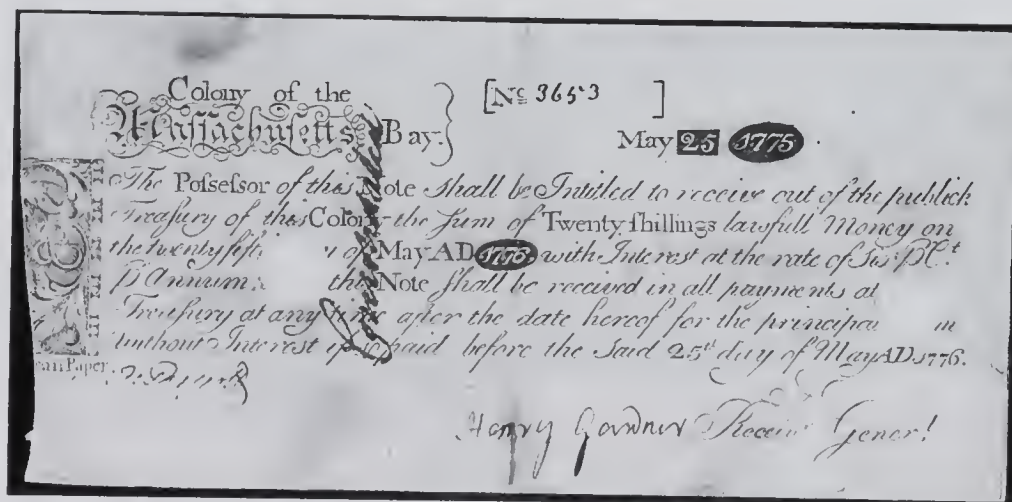 Colony of the
Maſsachuſetts Bay.
[No 3653 ]
May 25 1775.
The Poſseſsor of this Note Shall be Intitled to receive out of the publick
Treaſury of this Colony the Sum of Twenty ſhillings lawfull Money on
the twenty fifth of May AD 1776 with Intereſt at the rate of Six P Ct.
P Annum the Note ſhall be received in all payments at
Treaſury at any time after the date hereof for the principal
without Intereſt if so paid before the Said 25th day of May AD. 1776.
Paper
Henry Gardner Receivr Generl
Counterfeit